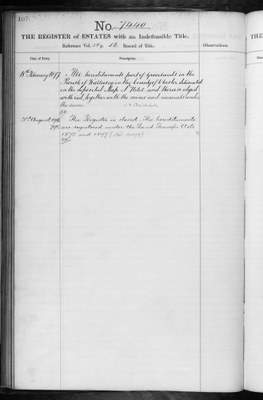 167.
No. 7440
THE REGISTER of ESTATES with an Indefeasible Title.
Reference Vol. Record of Title.
Observations.
Date of Entry.
Description.
18th February 1897
The hereditaments part of Greenlands in the
Parish of Wallasey in the County of Chester delineated
on the deposited Map and thereon edged
with red together with the mines and minerals under
the same.
The Register is closed. The hereditaments
are registered under the Land Transfer Acts
1875 and 1897